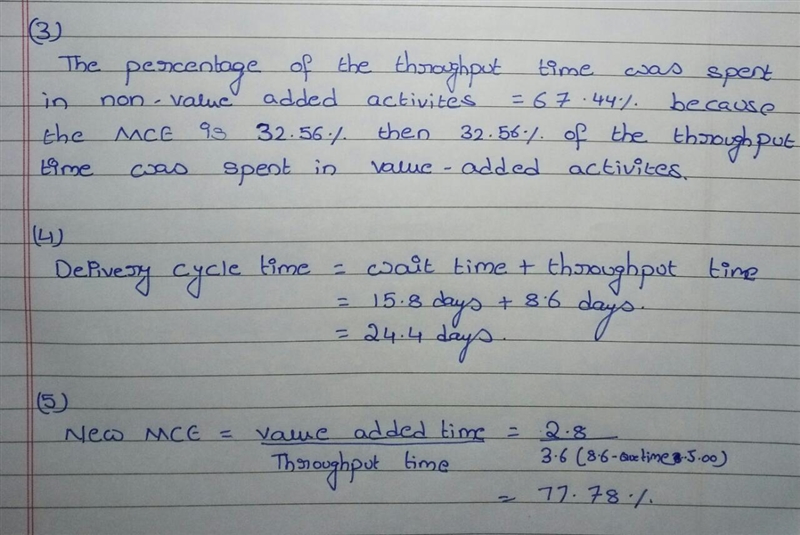 (3)
The percentage of the throughput time was spent
in non-value added activites = 67.44%. because
the MCE is 32.56% then 32.56% of the throughput
time was spent in value-added activites.
(4)
Delivery cycle time = wait time + throughput time
= 15.8 days + 8.6 days.
= 24.4 days.
(5)
New MCE = value added time / Throughput time = 2.8 / 3.6 (8.6- time 5.00)
= 77.78%